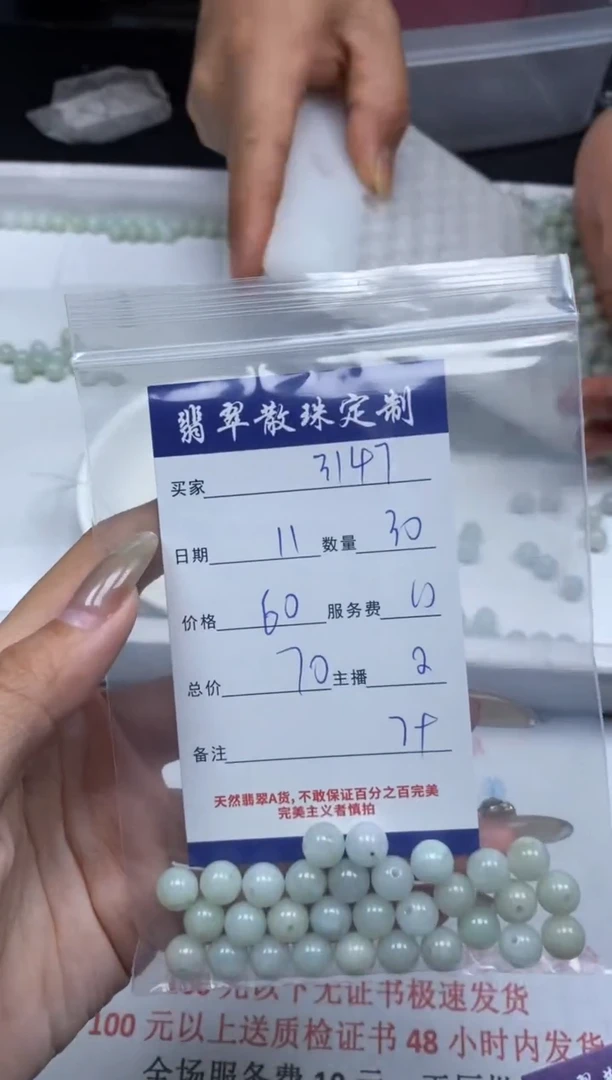 翡翠散珠定制
买家 3147
日期 11 数量 30
价格 60 服务费 10
总价 70 主播 2
备注
天然翡翠A货，不敢保证百分之百完美
完美主义者慎拍
元以下无证书极速发货
100元以上送质检证书48小时内发货
全场服务费10元